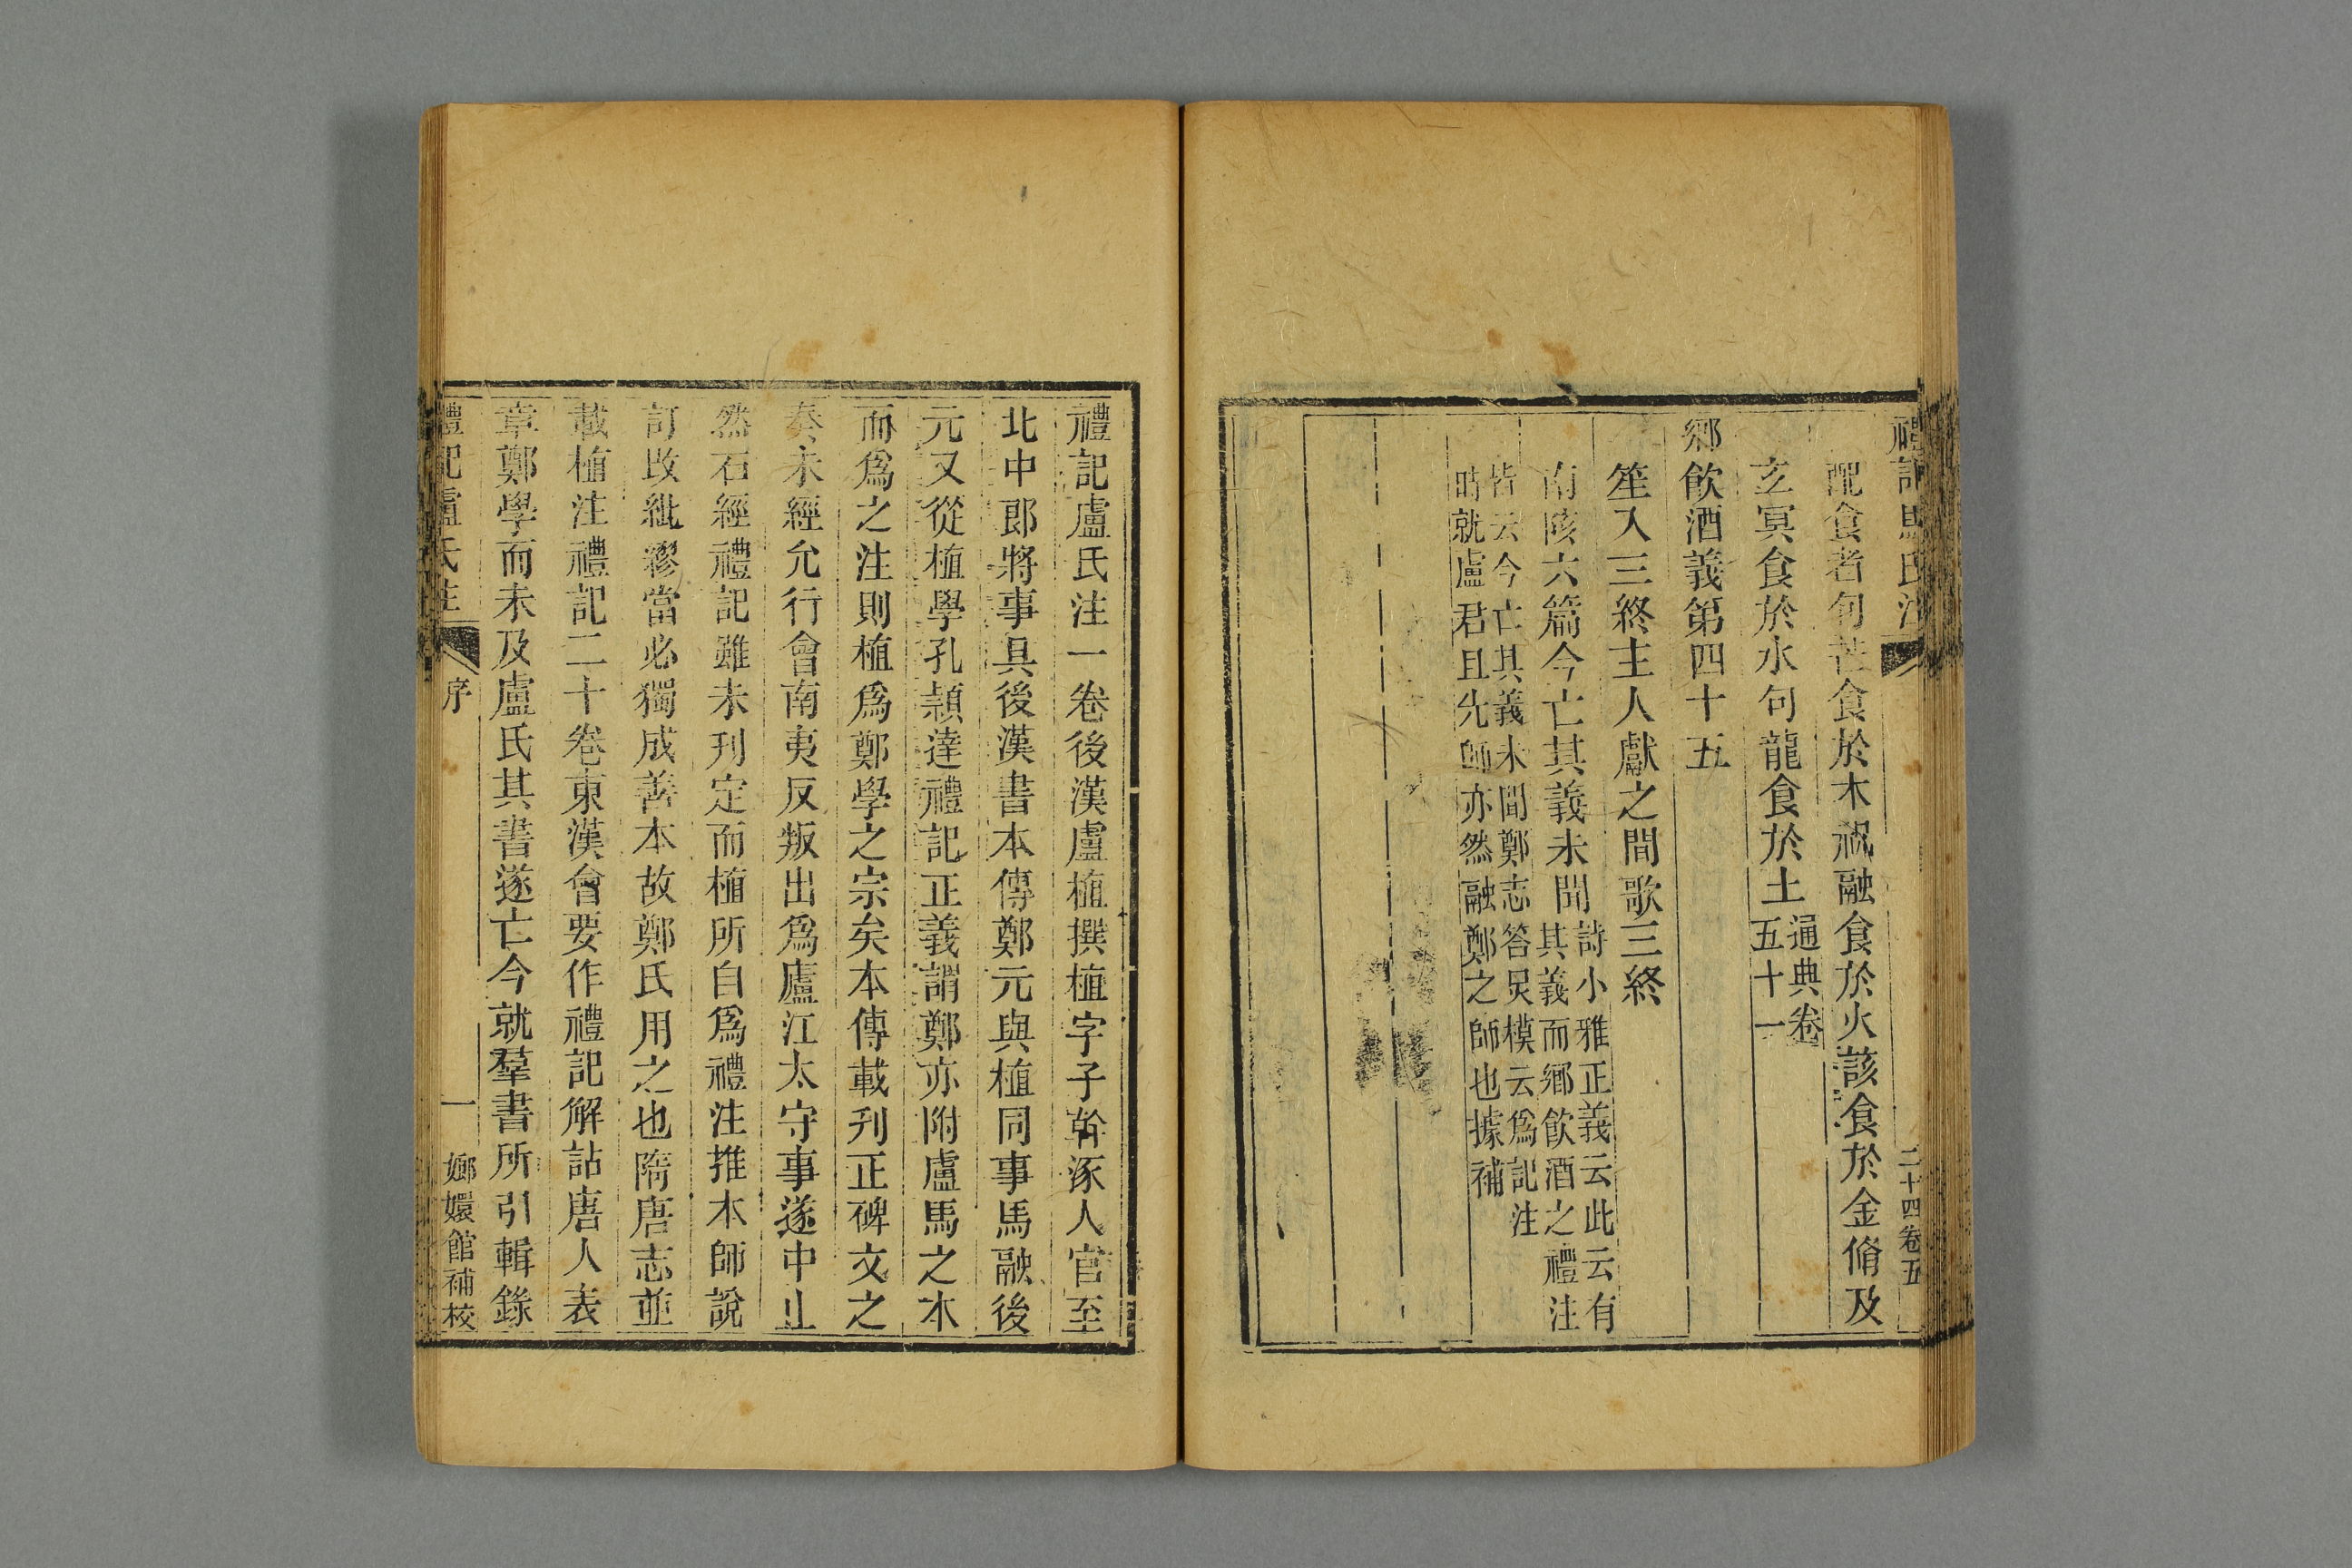 禮記馬氏注 二十四卷五
配食者句芒食於木祝融食於火該食於金脩及
玄冥食於水句龍食於土通典卷
五十一
鄉飲酒義第四十五
笙入三終主人獻之間歌三終
南陔六篇今亡其義未聞詩小雅正義云此云有
其義而鄉飲酒之禮注
皆云今亡其義未聞鄭志答炅模云爲記注
時就盧君且先師亦然融鄭之師也據補
禮記盧氏注一卷後漢盧植撰植字子幹涿人官至
北中郎將事具後漢書本傳鄭元與植同事馬融後
元又從植學孔穎達禮記正義謂鄭亦附盧馬之本
而爲之注則植爲鄭學之宗矣本傳載刋正碑文之
奏未經允行會南夷反叛出爲廬江太守事遂中止
然石經禮記雖未刋定而植所自爲禮注推本師說
訂改紕繆當必獨成善本故鄭氏用之也隋唐志並
載植注禮記二十卷東漢會要作禮記解詁唐人表
章鄭學而未及盧氏其書遂亡今就羣書所引輯錄
禮記盧氏注 序 一 嫏嬛館補校